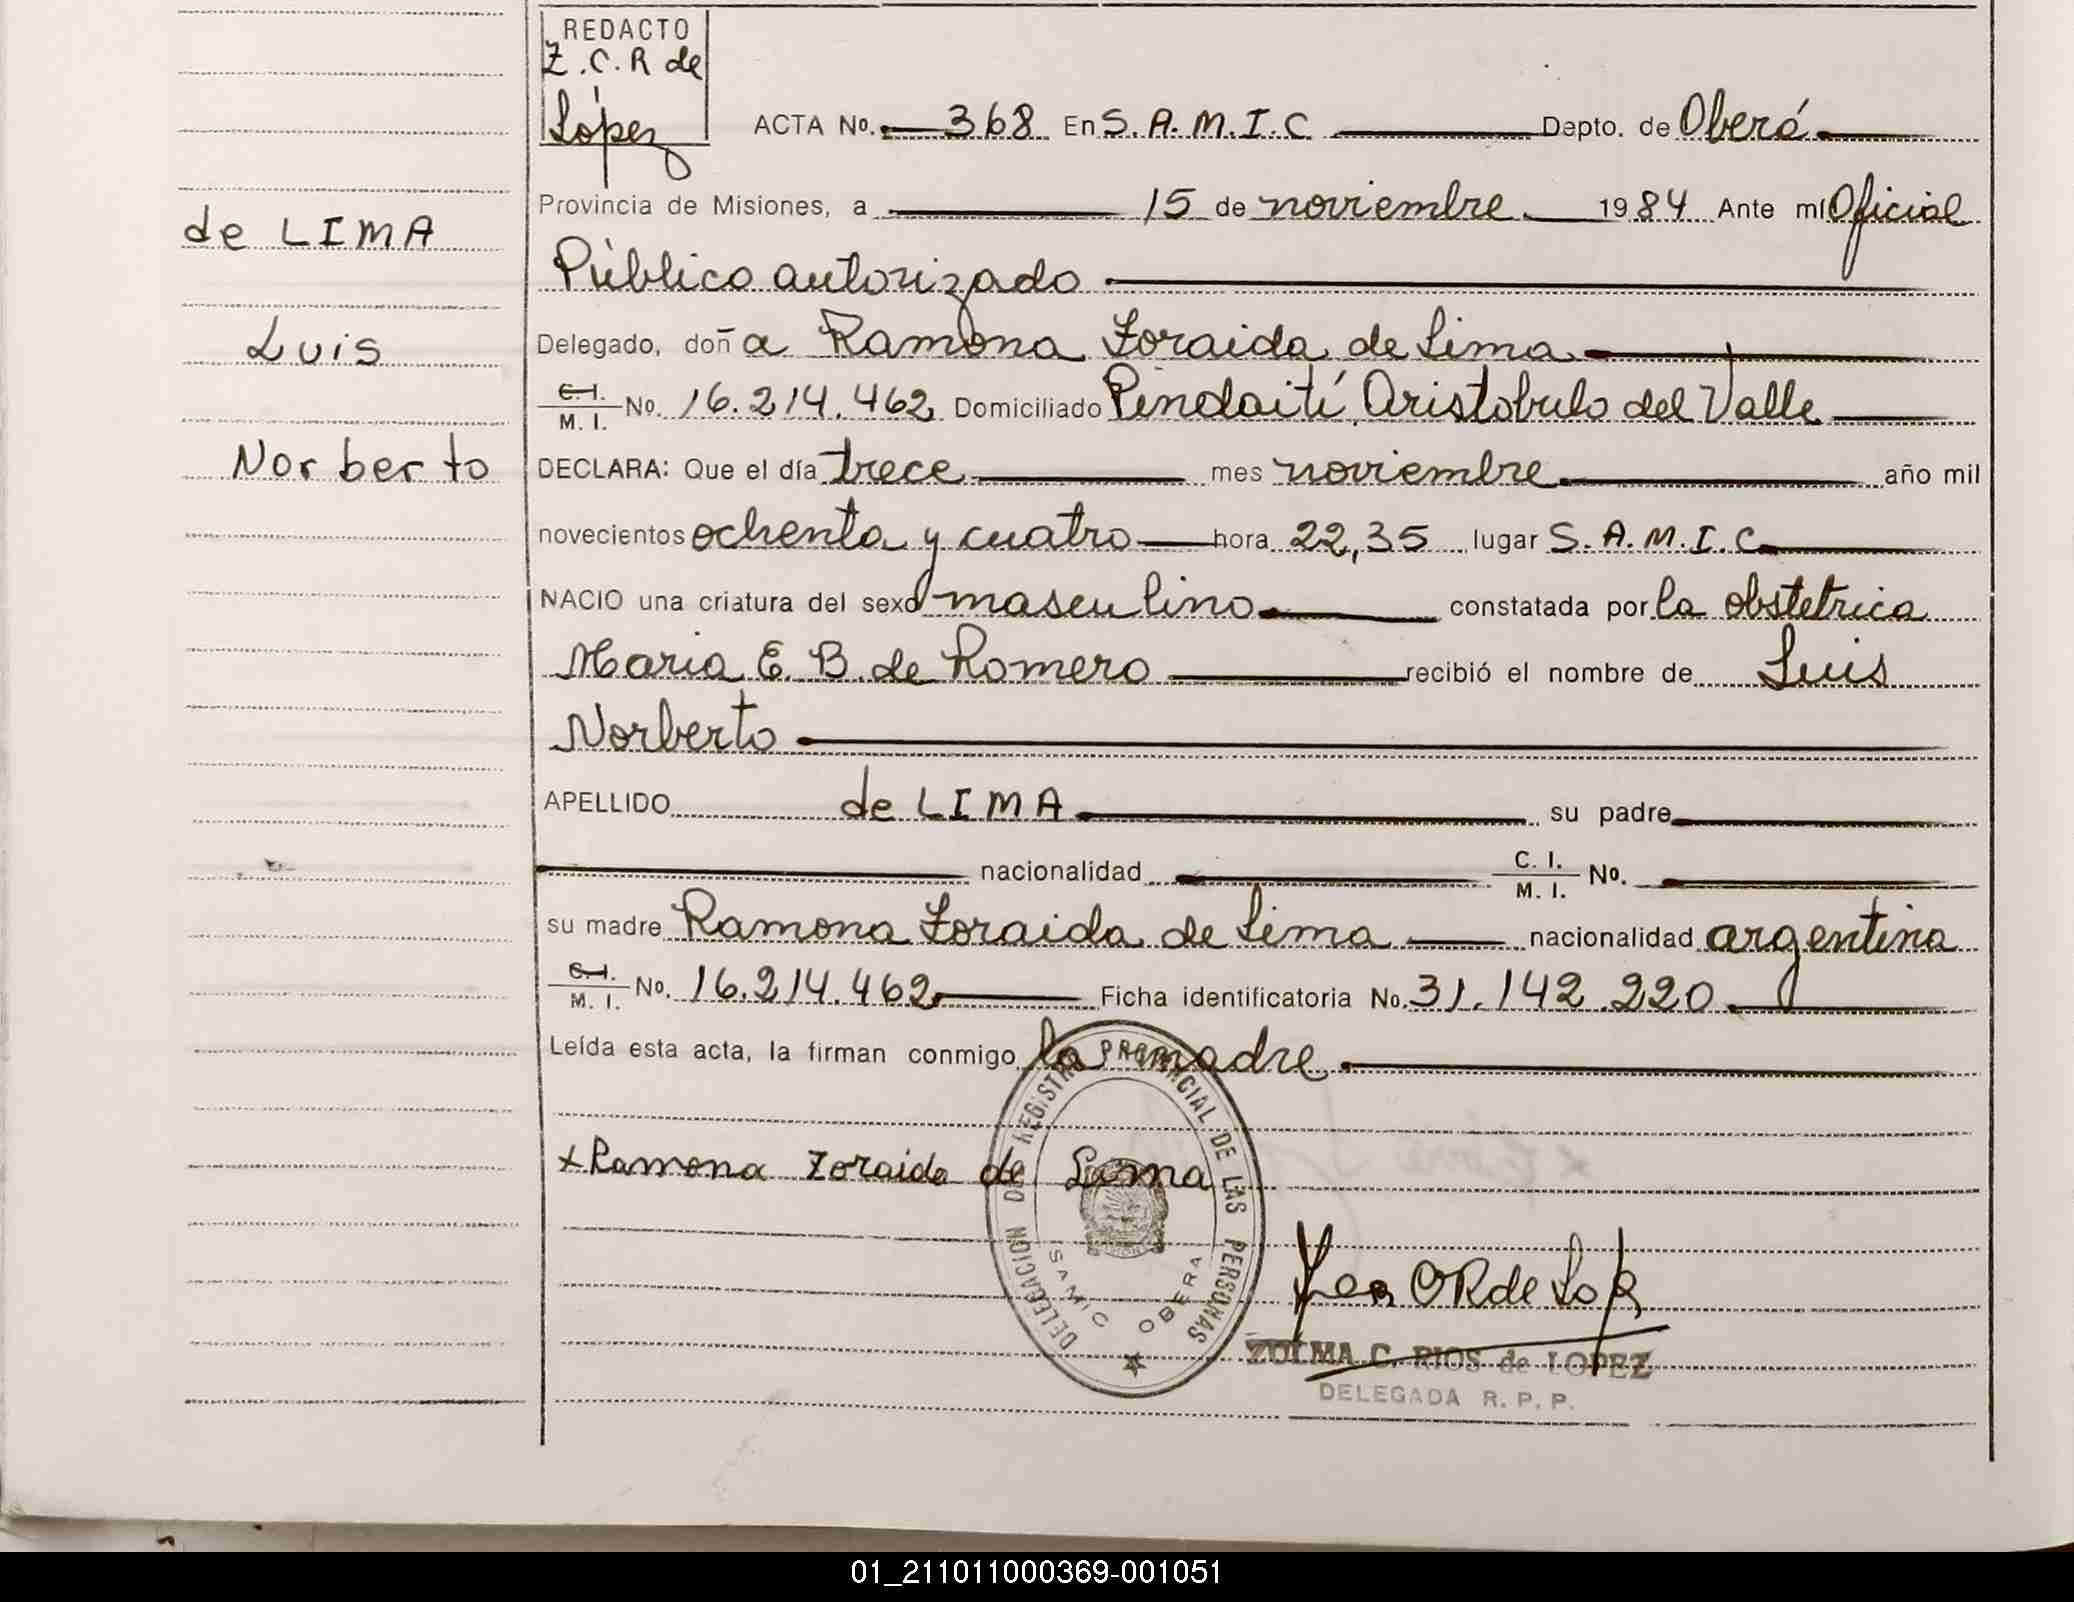 REDACTO
Z.C.R de
López
ACTA No. 368 En S.A.M.I.C Depto. de Oberá
Provincia de Misiones, a 15 de noviembre 1984 Ante mí Oficial
Público autorizado
de LIMA
Delegado, doña Ramona Zoraida de Lima
Luis
C.I. M.I. No. 16.214.462 Domiciliado Pindaití Aristobulo del Valle
Norberto
DECLARA: Que el día trece mes noviembre año mil
novecientos ochenta y cuatro hora 22,35 lugar S.A.M.I.C
NACIO una criatura del sexo masculino constatada por la obstetrica
Maria E. B. de Romero recibió el nombre de Luis
Norberto
APELLIDO de LIMA su padre
nacionalidad C. I. M. I. No.
su madre Ramona Zoraida de Lima nacionalidad argentina
C.I. M. I. No. 16.214.462 Ficha identificatoria No. 31.142.220
Leída esta acta, la firman conmigo la madre
x Ramona Zoraida de Lima
DELEGACION DEL REGISTRO PROVINCIAL DE LAS PERSONAS
SAMIC OBERA
ZULMA C. RIOS de LOPEZ
DELEGADA R. P. P.
01_211011000369-001051